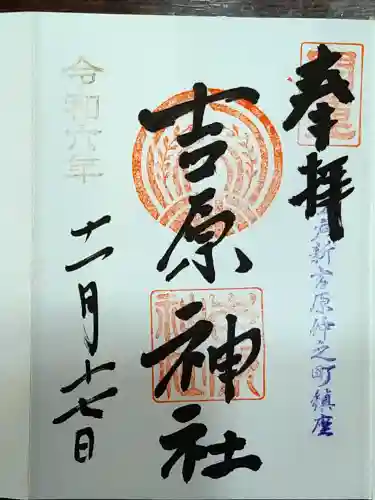 奉拝
新吉原仲之町鎮座
吉原神社
令和六年
十一月十七日